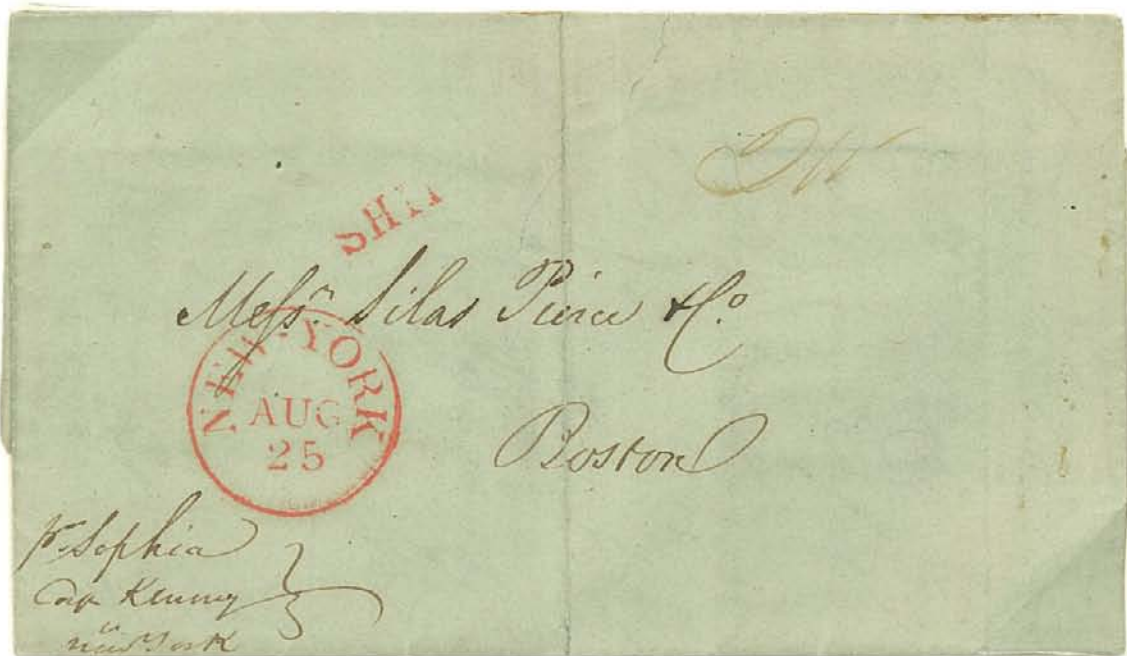 SHI
Messrs. Silas Pierce & Co.
NEW-YORK
AUG
25
Boston
pr Sophia
Cap Kenney
New York